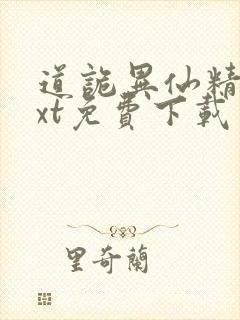 道詭異仙精
xt免費下載
里奇蘭